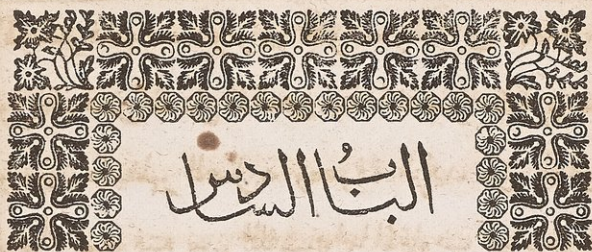 البابُ السادس